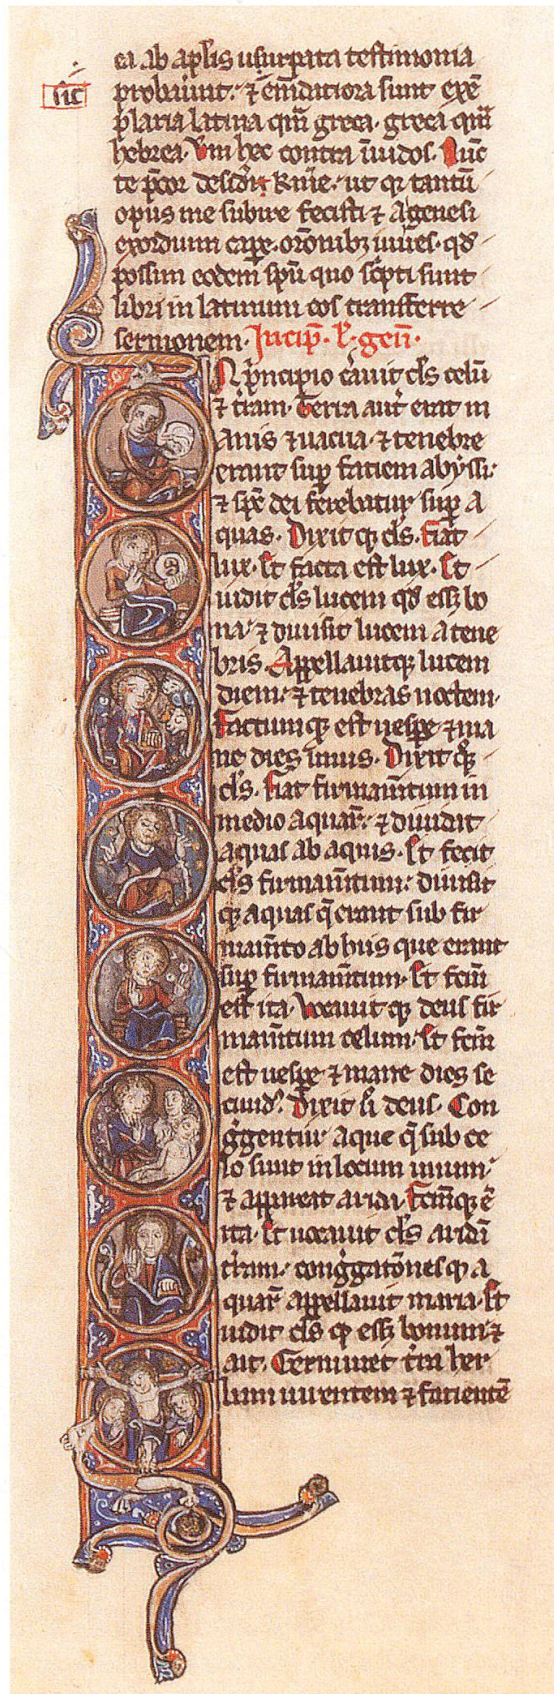 ea ab apl̄is usurpata testimonia
sic
probauūt. ⁊ em̄datiora sunt exē
plaria latina qm̄ greca. greca qm̄
hebrea. Vm hec contra īuidos. Nūc
te p̄cor
opus me subire fecisti ⁊ a genesi
exordium cape. or̄onibꝫ iuues. qd̄
possim eodem sp̄u quo sc̄pti sunt
libri in latinum eos transferre
sermonem. Incip̄. l̄. gen̄.
IN p̄ncipio c̄auit d̄s celū
⁊ t̄ram. Terra aut̄ erat in
anis ⁊ uacua. ⁊ tenebre
erant sup̄ fatiem abyssi.
⁊ sp̄c dei ferebatur sup̄ a
quas. Dixit qꝫ d̄s. Fiat
lux. Et facta est lux. Et
uidit d̄s lucem qd̄ essꝫ bo
na. ⁊ diuisit lucem a tene
bris. Appellauitqꝫ lucem
diem. ⁊ tenebras noctem.
Factumqꝫ est uesp̄e ⁊ ma
ne dies unus. Dixit qꝫ
d̄s. Fiat firmam̄tum in
medio aquaꝝ. ⁊ diuidat
aquas ab aquis. Et fecit
d̄s firmam̄tum. diuisit
qꝫ aquas q̄ erant sub fir
mam̄to ab hiis que erant
sup̄ firmam̄tum. Et fc̄m
est ita. Vocauit qꝫ deus fir
mam̄tum celum. Et fc̄m
est uesp̄e ⁊ mane dies se
cundꝰ. Dixit ū deus. Con
g̓gentur aque q̄ sub ce
lo sunt in locum unum.
⁊ appareat arida. Fc̄m qꝫ ē
ita. Et uocauit d̄s aridā
t̄ram. cong̓gat̄ones qꝫ a
quaꝝ appellauit maria. Et
uidit d̄s ꝙ essꝫ bonum. ⁊
ait. Germinet t̄ra her
bam uirentem ⁊ facientē